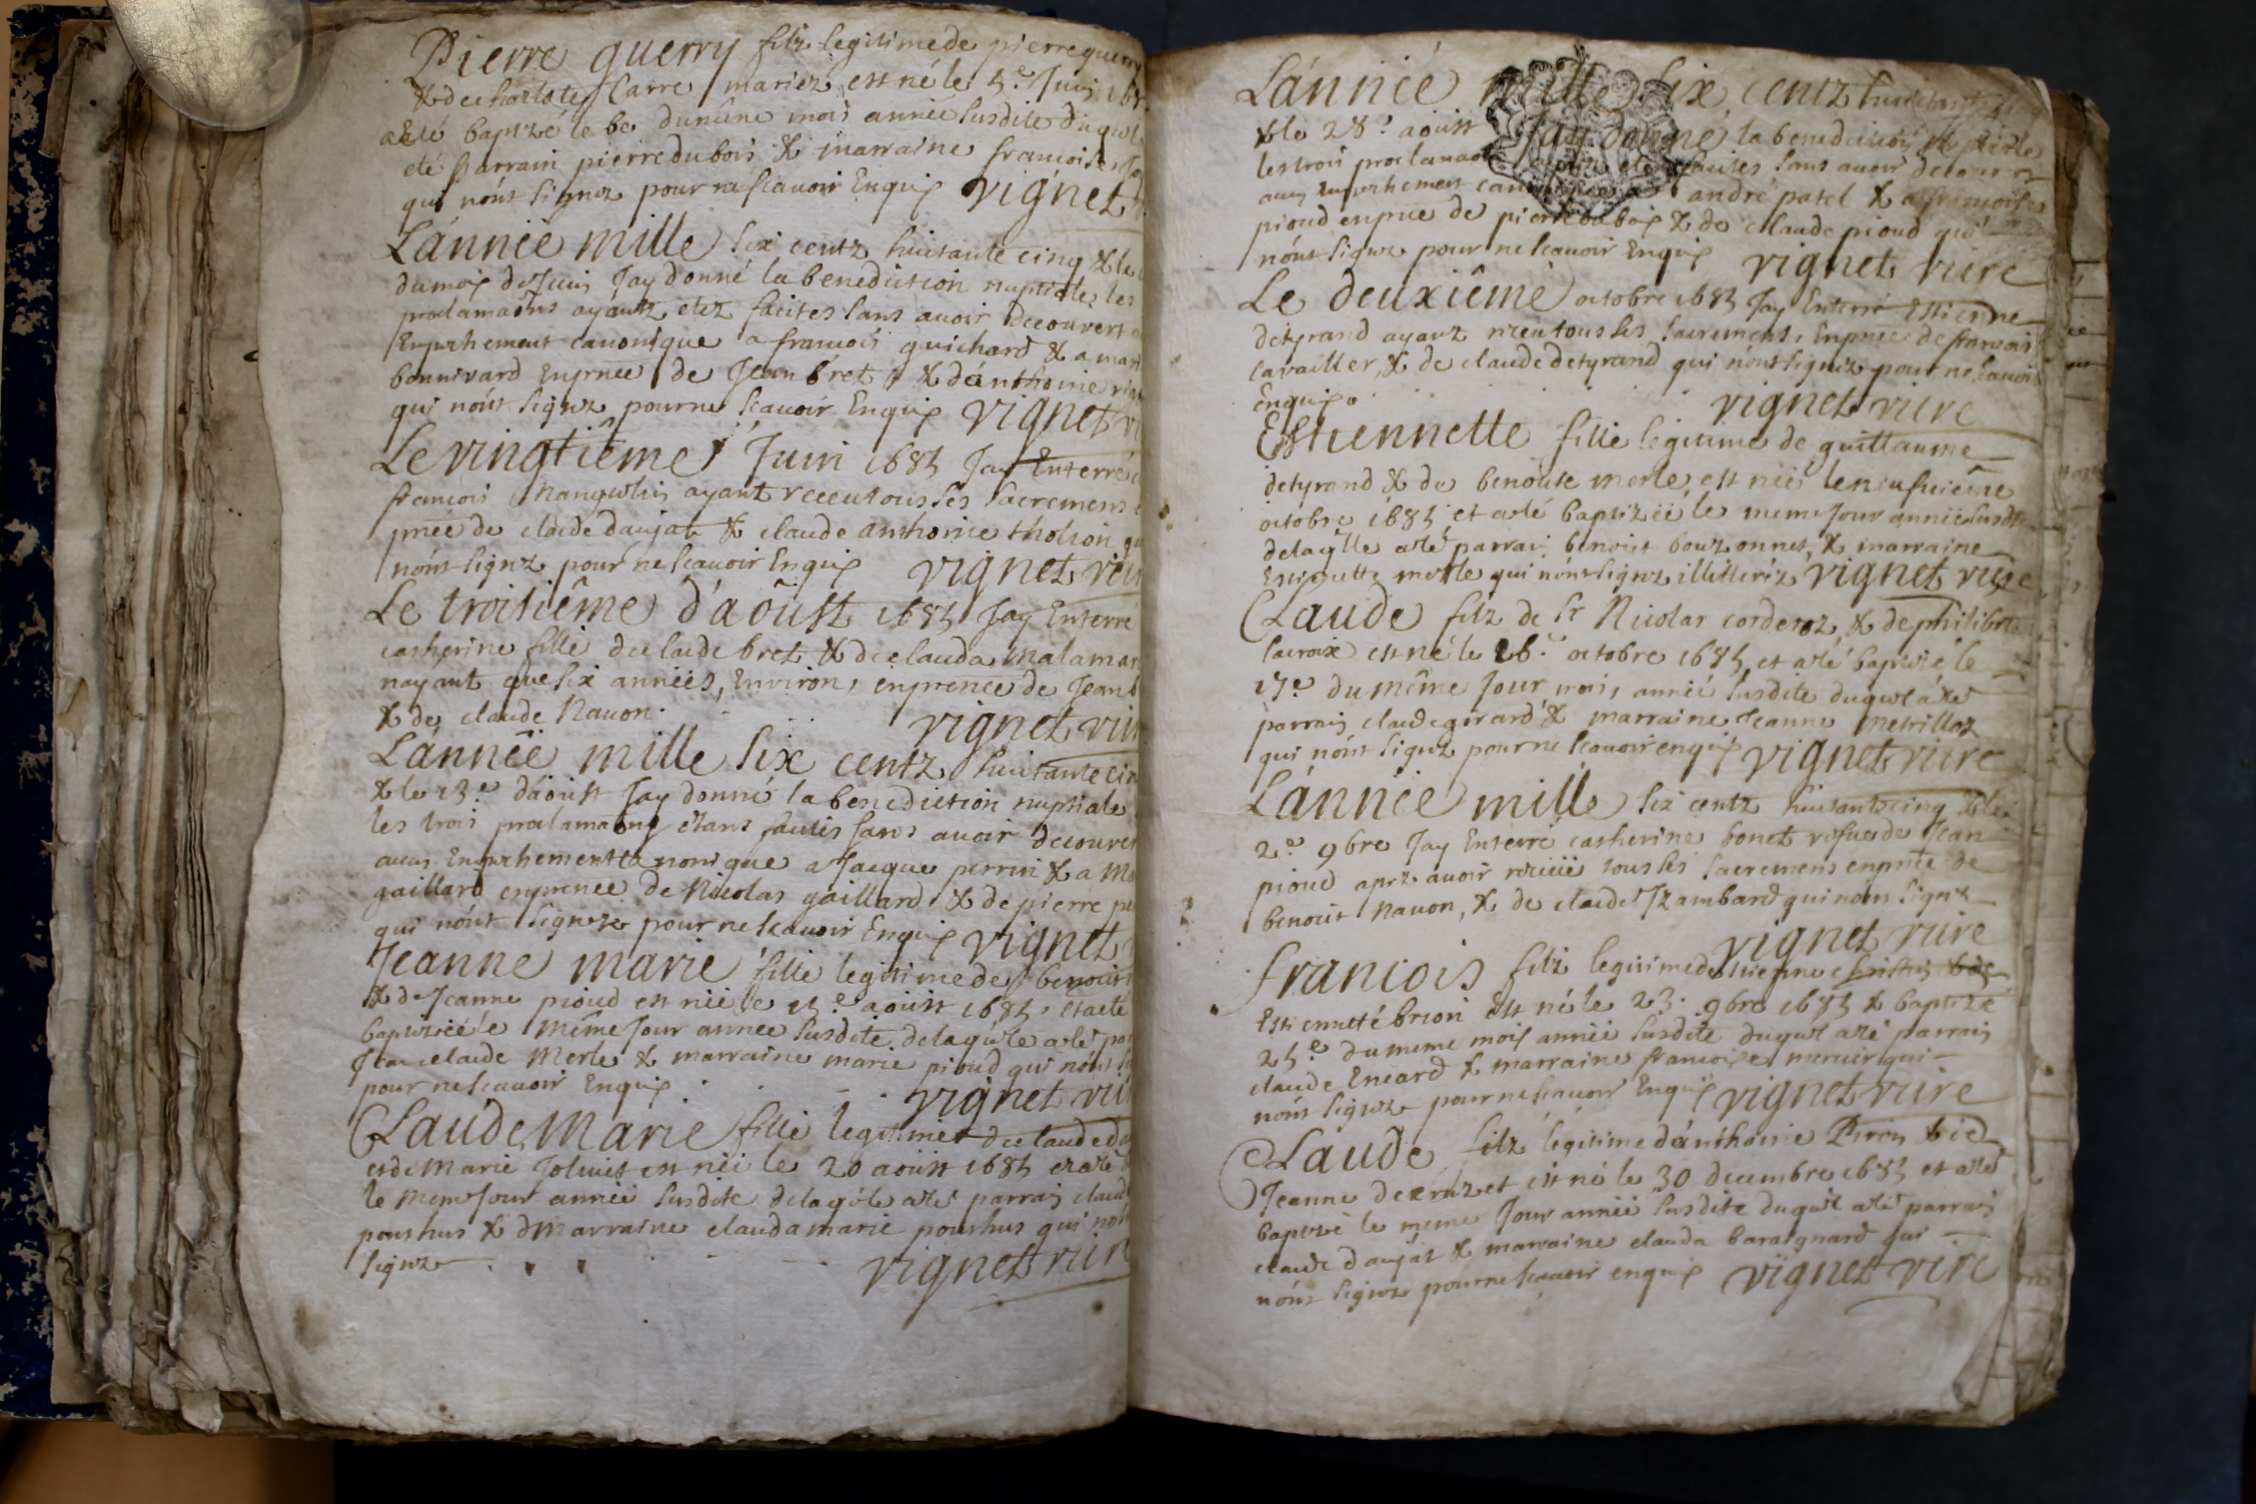 Pierre guerry filz legitime de pierre guerry
& de charlote Carre mariez, est né le 5.e Juin
a eté baptizé le 6e du même mois année susdite duquel
eté parrain pierre dubois & marraine francoise
qui n'ont signez pour ne scavoir Enquis vignet
L'année mille six centz huitante cinq & le
du mois de Juin Jay donné la benediction nuptiale, les
proclamaõns ayantz etez faites sans avoir decouvert
Empechement canonique a francois guichard & a marie
bonnivard Enprnce de Jean bret & d'anthoine
qui n'ont signez pour ne scavoir Enquis vignet
Le vingtiême Juin 1685 Jay Enterré
francois ayant receu tous ses sacremens
prnce de claude daujat & claude anthoine tholion
n'ont signez pour ne scavoir Enquis vignet vicre
Le troisiême d'aôust 1685 Jay Enterré
catherine fille de claude bret & de clauda
n'ayant que six années, Environ, enprence de Jean
& de claude Navon. vignet vic
L'année mille six centz huitante cin
& le 13.e d'aoust Jay donné la benediction nuptiale
les trois proclamaõns etans faites sans avoir decouvert
aucun Empechement canonique a Jacque perrin & a
gaillard enprence de Nicolas gaillard & de pierre
qui n'ont signez pour ne scavoir Enquis vignet
Jeanne marie fille legitime de benoist
& de Jeanne pioud est née le 15.e aoust 1685, et a eté
baptizée le même Jour annee susdite de laqu'lle a eté par
Jean claude Merle & marraine marie pioud qui n'ont
pour ne scavoir Enquis vignet vic
Claude Marie fille legitime de claude
et de Marie Jolivet est née le 20 aoust 1685 et a eté
le meme Jour année susdite de laqu'lle a eté parrain claude
pourhus & marraine clauda marie pourhus qui n'ont
signez vignet vicre
L'année mille six centz huitante
& le 28.e aoust Jay donné la benediction nuptiale
les trois proclamaõns ayant eté faites sans avoir decouvert
aucun Empechement canonique a andré patel & a francoise
pioud enprnce de pierre dubois & de claude pioud qui
n'ont signez pour ne scavoir Enquis vignet vicre
Le deuxiême octobre 1685 Jay Enterré Estienne
detyrand ayant receu tous ses sacrements, Enprnce de francois
cavailler, & de claude detyrand qui n'ont signez pour ne scavoir
Enquis. vignet vicre
Estiennette fille legitime de guillaume
detyrand & de benoite merle est née le neufviême
octobre 1685 et a eté baptizée le meme Jour année susdite
de laq'lle a eté parrain benoist bouzonnet, & marraine
Estiennette merle qui n'ont signez illitteréz vignet vicre
Claude filz de Sr Nicolas corderoz & de philiberte
lacroix est né le 16.e octobre 1685, et a eté baptizé le
17.e du même Jour, mois, année susdite duquel a eté
parrain claude girard & marraine Jeanne
qui n'ont signez pour ne scavoir enquis vignet vicre
L'année mille six centz huitante cinq & le
2.e 9bre Jay Enterré catherine bonet vefve de Jean
pioud aprz avoir receu tous ses sacremens enprnce de
benoist Navon, & de claude Jzambard qui n'ont signez
vignet vicre
francois filz legitime d'estienne & de
Estiennette brion est né le 23. 9bre 1685 & baptizé
25.e du meme mois année susdite duquel a eté parrain
claude Eneard & marraine francoise mercier qui
n'ont signez pour ne scavoir Enquis vignet vicre
Claude filz legitime d'anthoine Piron & de
Jeanne decrozet est né le 30 decembre 1685 et a eté
baptizé le meme Jour année susdite duquel a eté parrain
claude daujat & marraine clauda baraignard qui
n'ont signez pour ne scavoir enquis vignet vicre